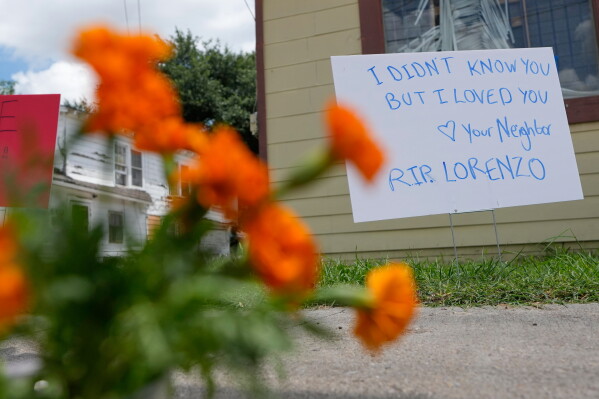 I DIDN'T KNOW YOU
BUT I LOVED YOU
♡ Your Neighbor
R.I.P. LORENZO